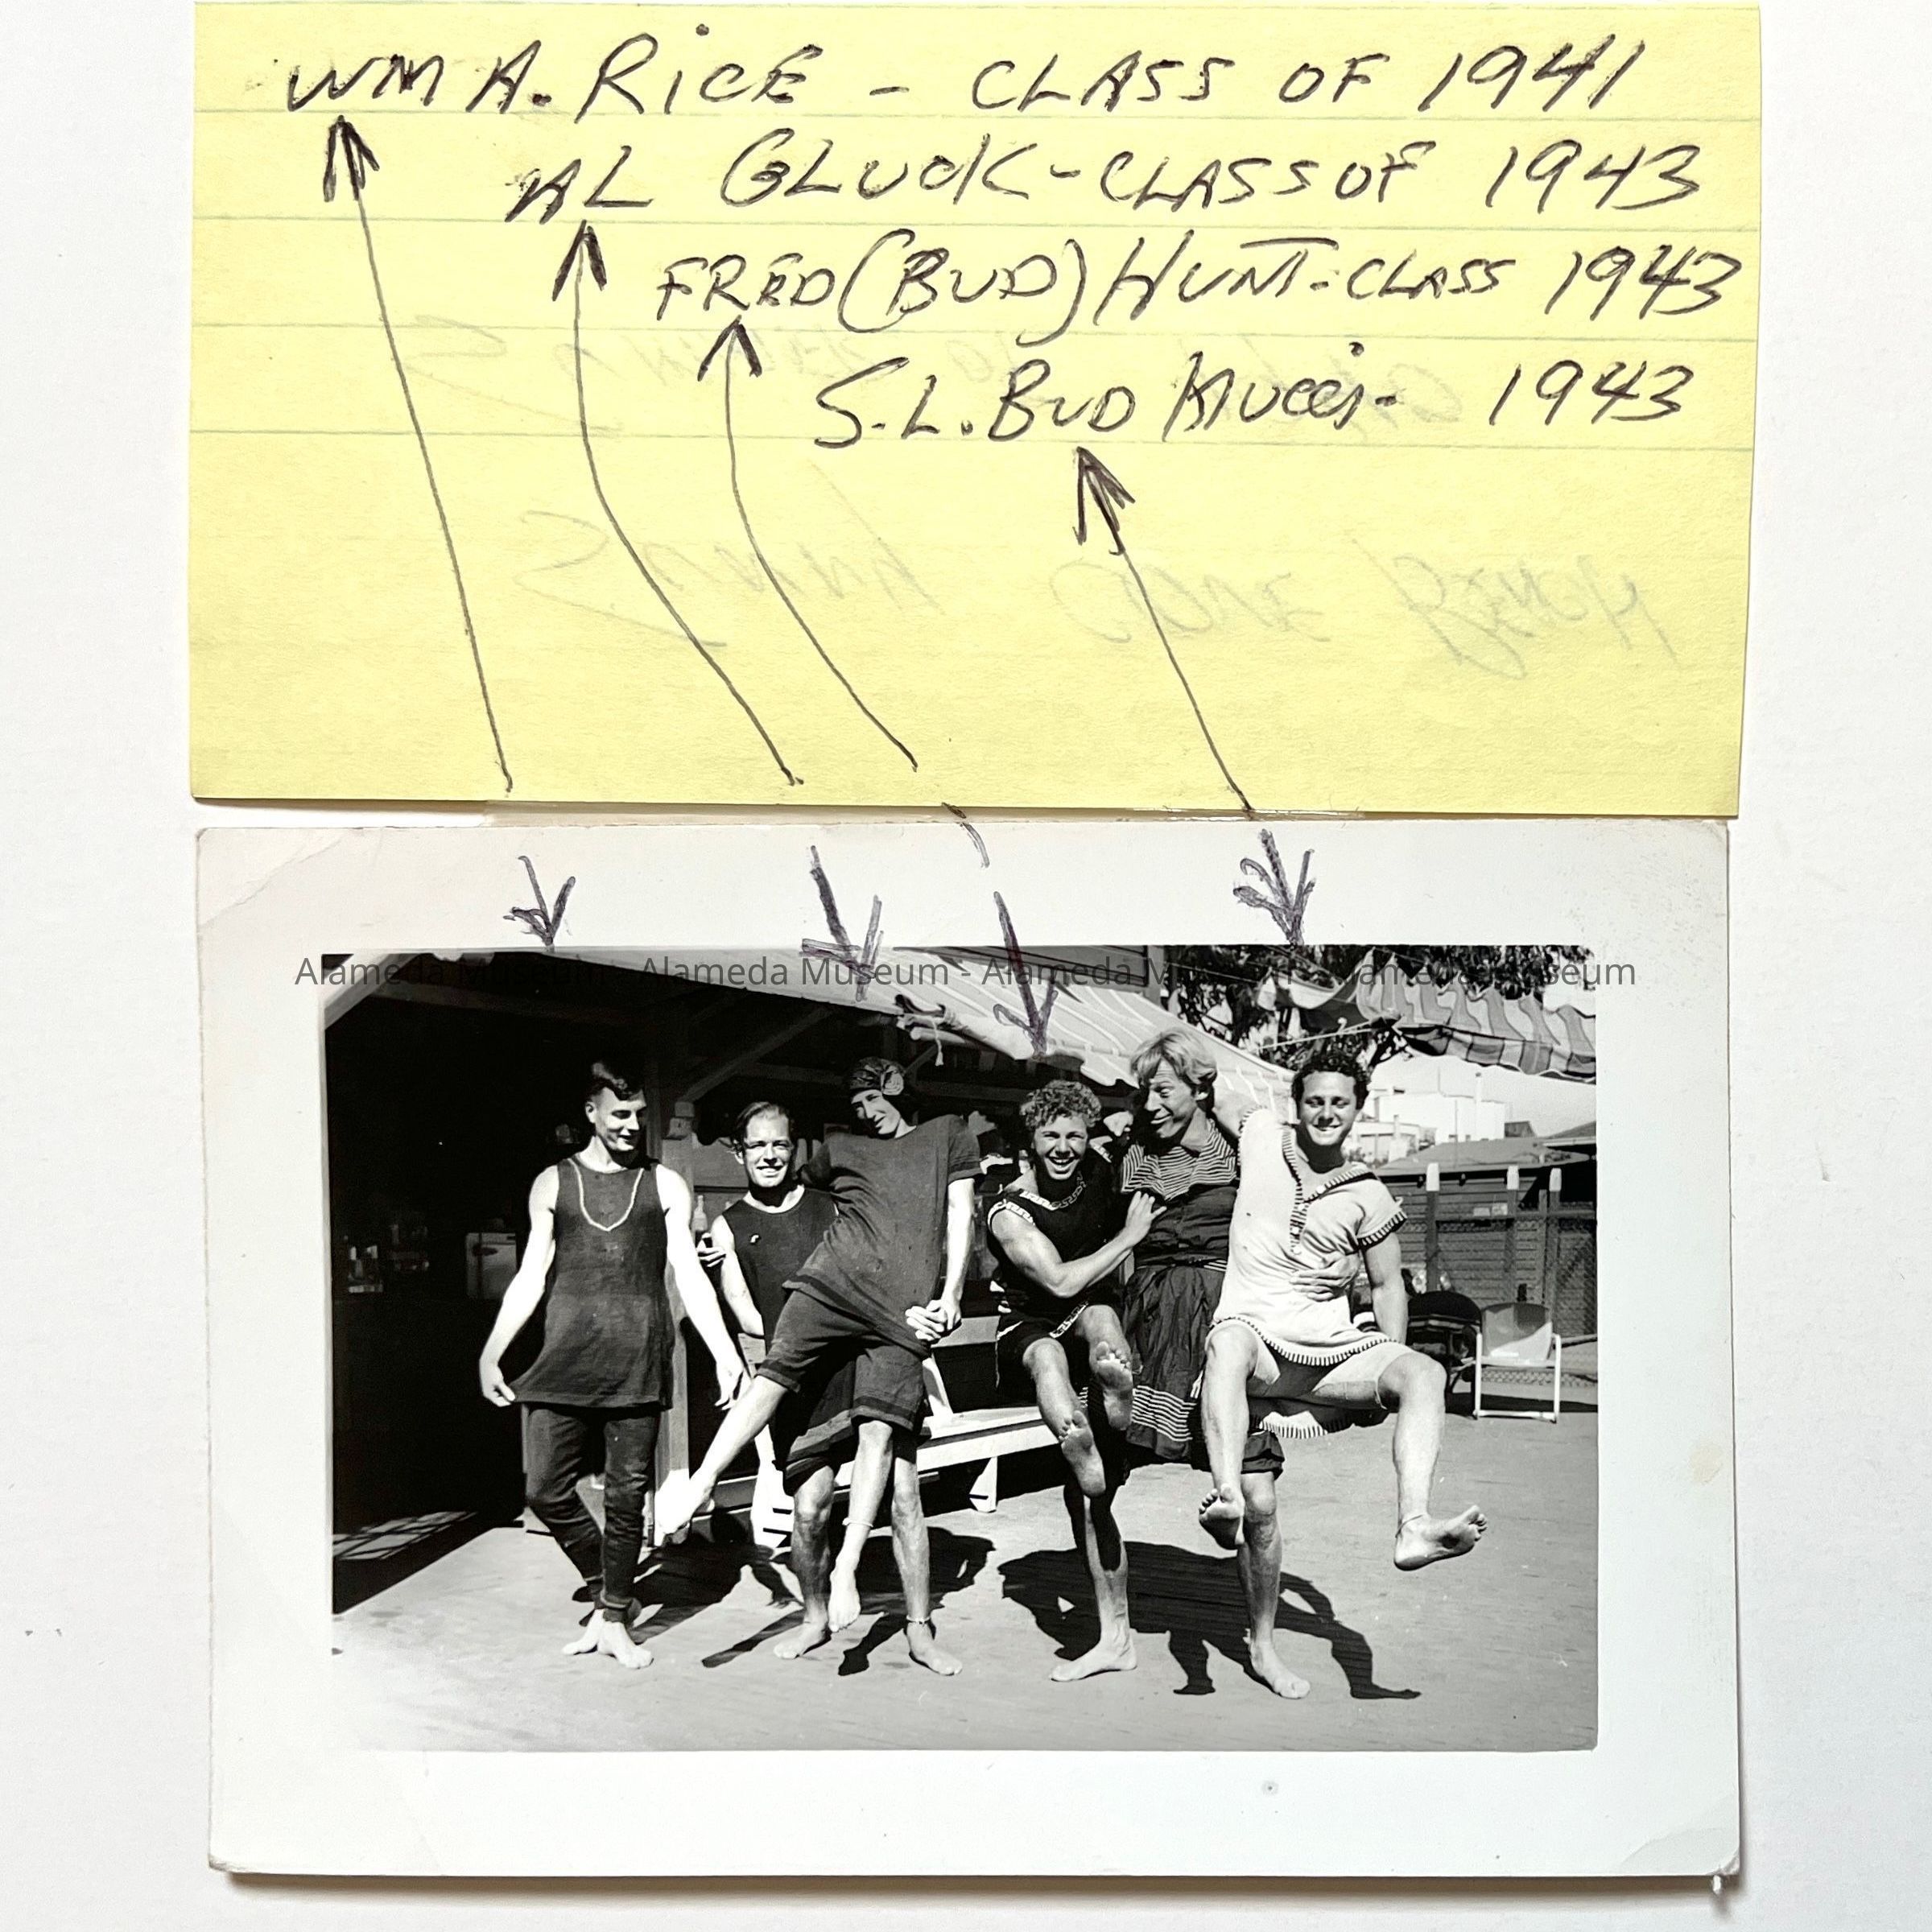 WM A. RICE - CLASS OF 1941
AL GLUCK - CLASS OF 1943
FRED (BUD) HUNT - CLASS 1943
S.L. BUD - 1943
Alameda Museum - Alameda Museum - Alameda Museum - Alameda Museum